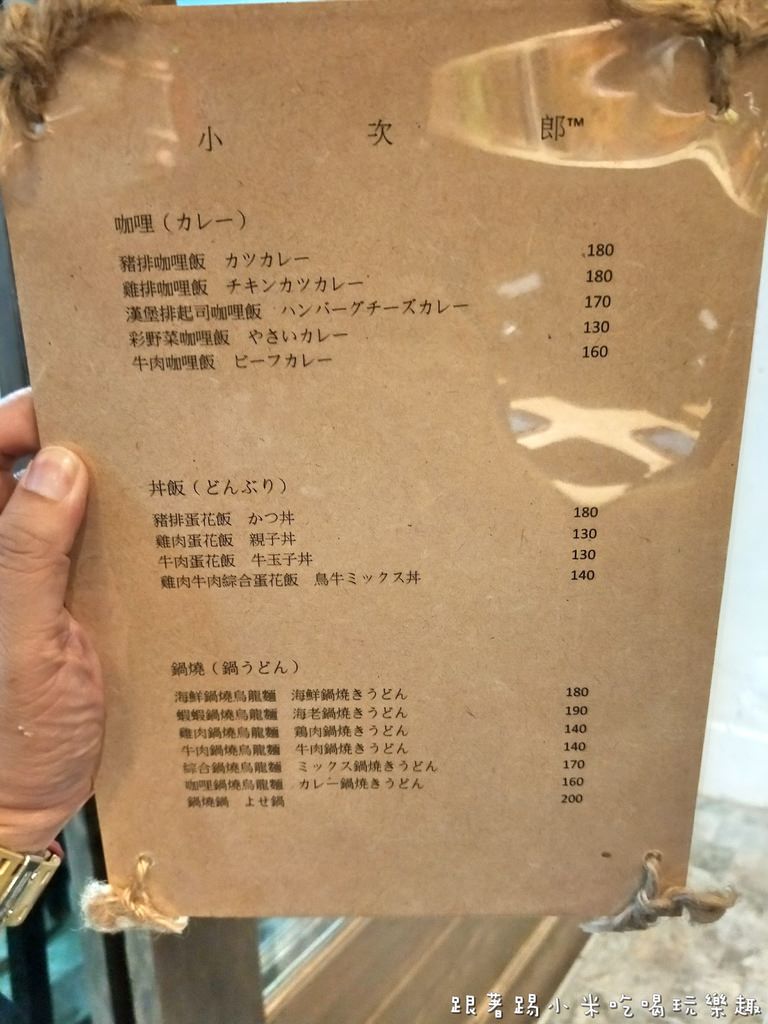 小 次 郎™
咖哩（カレー）
豬排咖哩飯 カツカレー 180
雞排咖哩飯 チキンカツカレー 180
漢堡排起司咖哩飯 ハンバーグチーズカレー 170
彩野菜咖哩飯 やさいカレー 130
牛肉咖哩飯 ビーフカレー 160
丼飯（どんぶり）
豬排蛋花飯 かつ丼 180
雞肉蛋花飯 親子丼 130
牛肉蛋花飯 牛玉子丼 130
雞肉牛肉綜合蛋花飯 鳥牛ミックス丼 140
鍋燒（鍋うどん）
海鮮鍋燒烏龍麵 海鮮鍋焼きうどん 180
蝦蝦鍋燒烏龍麵 海老鍋焼きうどん 190
雞肉鍋燒烏龍麵 鶏肉鍋焼きうどん 140
牛肉鍋燒烏龍麵 牛肉鍋焼きうどん 140
綜合鍋燒烏龍麵 ミックス鍋焼きうどん 170
咖哩鍋燒烏龍麵 カレー鍋焼きうどん 160
鍋燒鍋 よせ鍋 200
跟著踢小米吃喝玩樂趣